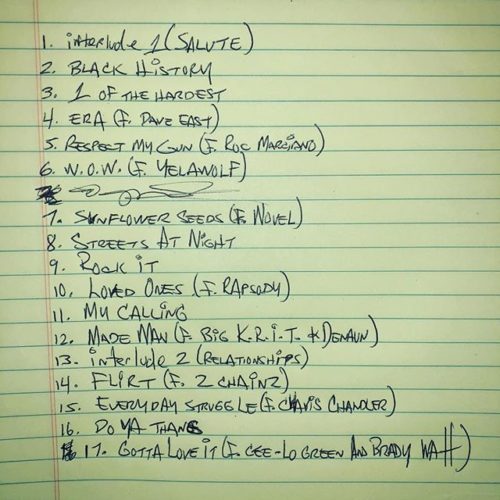 1. interlude 1 (SALUTE)
2. BLACK HISTORY
3. 1 OF THE HARDEST
4. ERA (F. DAVE EAST)
5. RESPECT MY GUN (F. ROC MARCIANO)
6. W.O.W. (F. YELAWOLF)
7. SUNFLOWER SEEDS (F. NOVEL)
8. STREETS AT NIGHT
9. ROCK iT
10. LOVED ONES (F. RAPSODY)
11. MY CALLING
12. MADE MAN (F. BIG K.R.I.T. & DENAUN)
13. interlude 2 (RELATIONSHIPS)
14. FLIRT (F. 2 CHAINZ)
15. EVERYDAY STRUGGLE (F. CHAVIS CHANDLER)
16. DO YA THANG
17. GOTTA LOVE iT (F. CEE-LO GREEN AND BRADY WATT)